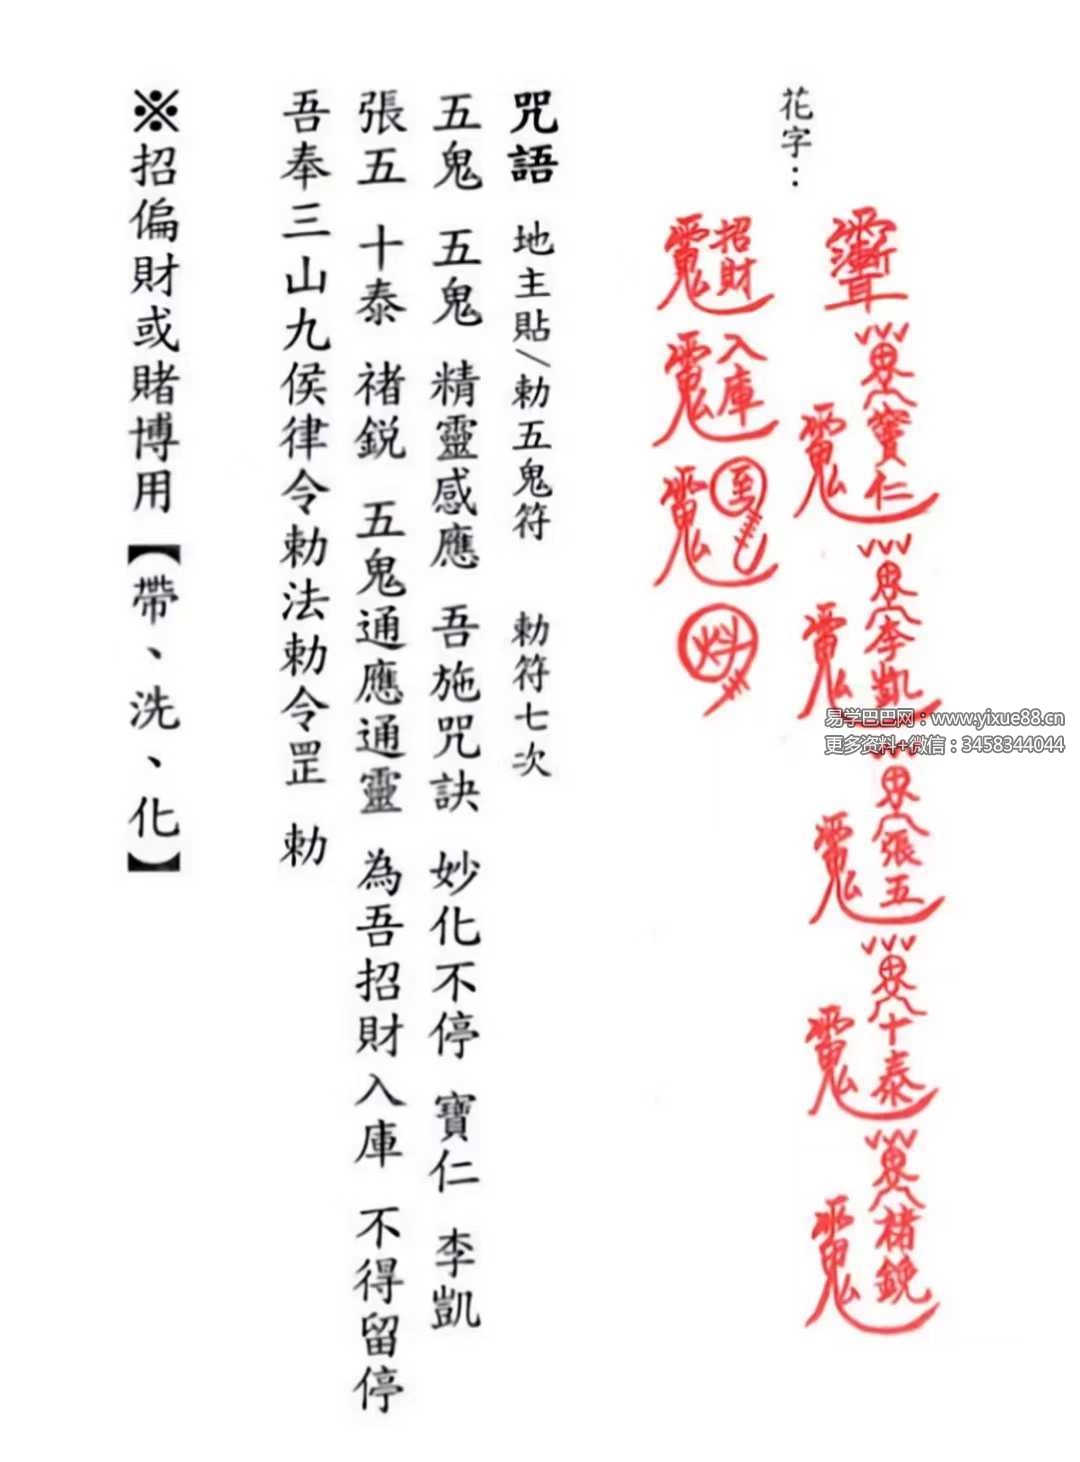 花字：
寶仁
李凱
張五
十泰
褚鋭
招財
入庫
至
咒語 地主貼/勅五鬼符 勅符七次
五鬼 五鬼 精靈感應 吾施咒訣 妙化不停 寶仁 李凱
張五 十泰 褚鋭 五鬼通應通靈 為吾招財入庫 不得留停
吾奉三山九侯律令勅法勅令罡 勅
※招偏財或賭博用【帶、洗、化】
易学巴巴网：www.yixue88.cn
更多资料+微信：3458344044